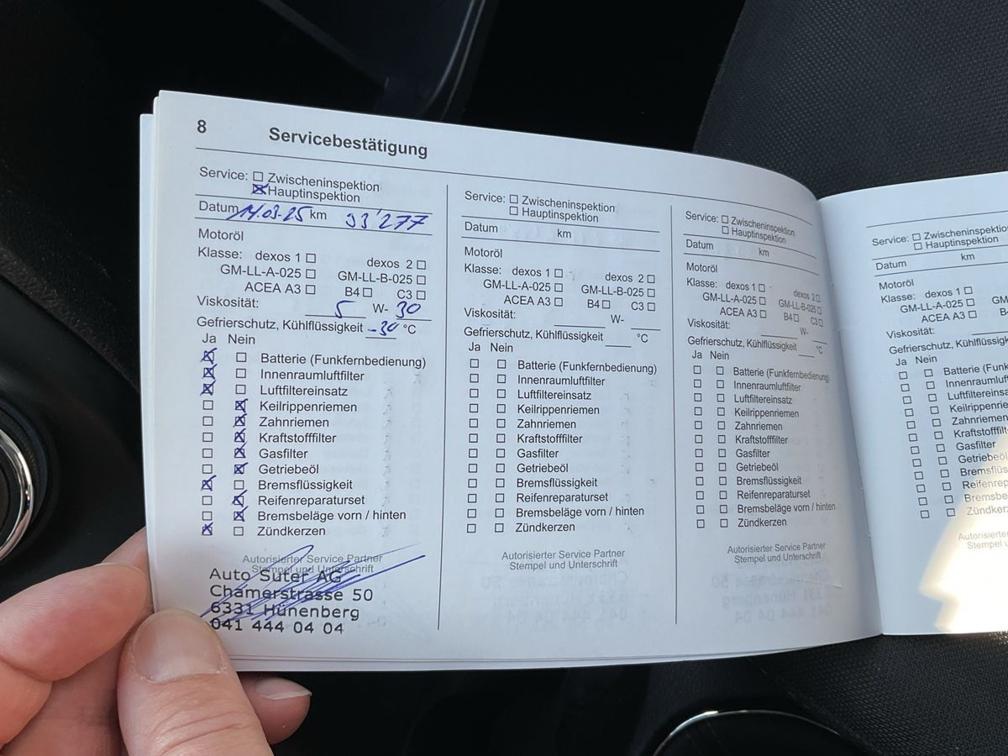 8 Servicebestätigung
Service: ☐ Zwischeninspektion
☒ Hauptinspektion
Datum 14.03.25 km 93'277
Motoröl
Klasse: dexos 1 ☐ dexos 2 ☐
GM-LL-A-025 ☐ GM-LL-B-025 ☐
ACEA A3 ☐ B4 ☐ C3 ☐
Viskosität: 5 W- 30
Gefrierschutz, Kühlflüssigkeit -30 °C
Ja Nein
☒ ☐ Batterie (Funkfernbedienung)
☒ ☐ Innenraumluftfilter
☒ ☐ Luftfiltereinsatz
☐ ☒ Keilrippenriemen
☐ ☒ Zahnriemen
☐ ☒ Kraftstofffilter
☐ ☒ Gasfilter
☐ ☒ Getriebeöl
☒ ☐ Bremsflüssigkeit
☐ ☒ Reifenreparaturset
☐ ☒ Bremsbeläge vorn / hinten
☒ ☐ Zündkerzen
Autorisierter Service Partner
Stempel und Unterschrift
Auto Suter AG
Chamerstrasse 50
6331 Hünenberg
041 444 04 04
Service: ☐ Zwischeninspektion
☐ Hauptinspektion
Datum km
Motoröl
Klasse: dexos 1 ☐ dexos 2 ☐
GM-LL-A-025 ☐ GM-LL-B-025 ☐
ACEA A3 ☐ B4 ☐ C3 ☐
Viskosität: W-
Gefrierschutz, Kühlflüssigkeit °C
Ja Nein
☐ ☐ Batterie (Funkfernbedienung)
☐ ☐ Innenraumluftfilter
☐ ☐ Luftfiltereinsatz
☐ ☐ Keilrippenriemen
☐ ☐ Zahnriemen
☐ ☐ Kraftstofffilter
☐ ☐ Gasfilter
☐ ☐ Getriebeöl
☐ ☐ Bremsflüssigkeit
☐ ☐ Reifenreparaturset
☐ ☐ Bremsbeläge vorn / hinten
☐ ☐ Zündkerzen
Autorisierter Service Partner
Stempel und Unterschrift
Service: ☐ Zwischeninspektion
☐ Hauptinspektion
Datum km
Motoröl
Klasse: dexos 1 ☐ dexos 2 ☐
GM-LL-A-025 ☐ GM-LL-B-025 ☐
ACEA A3 ☐ B4 ☐ C3 ☐
Viskosität: W-
Gefrierschutz, Kühlflüssigkeit °C
Ja Nein
☐ ☐ Batterie (Funkfernbedienung)
☐ ☐ Innenraumluftfilter
☐ ☐ Luftfiltereinsatz
☐ ☐ Keilrippenriemen
☐ ☐ Zahnriemen
☐ ☐ Kraftstofffilter
☐ ☐ Gasfilter
☐ ☐ Getriebeöl
☐ ☐ Bremsflüssigkeit
☐ ☐ Reifenreparaturset
☐ ☐ Bremsbeläge vorn / hinten
☐ ☐ Zündkerzen
Autorisierter Service Partner
Stempel und Unterschrift
Service: ☐ Zwischeninspektio
☐ Hauptinspektion
Datum km
Motoröl
Klasse: dexos 1 ☐
GM-LL-A-025 ☐ GM
ACEA A3 ☐ B4
Viskosität:
Gefrierschutz, Kühlflüssigk
Ja Nein
☐ ☐ Batterie (Funk
☐ ☐ Innenraumluftf
☐ ☐ Luftfiltereinsa
☐ ☐ Keilrippenrie
☐ ☐ Zahnriemen
☐ ☐ Kraftstofffilt
☐ ☐ Gasfilter
☐ ☐ Getriebeöl
☐ ☐ Bremsflüss
☐ ☐ Reifenrep
☐ ☐ Bremsbe
☐ ☐ Zündker
Autorisier
Stempel u